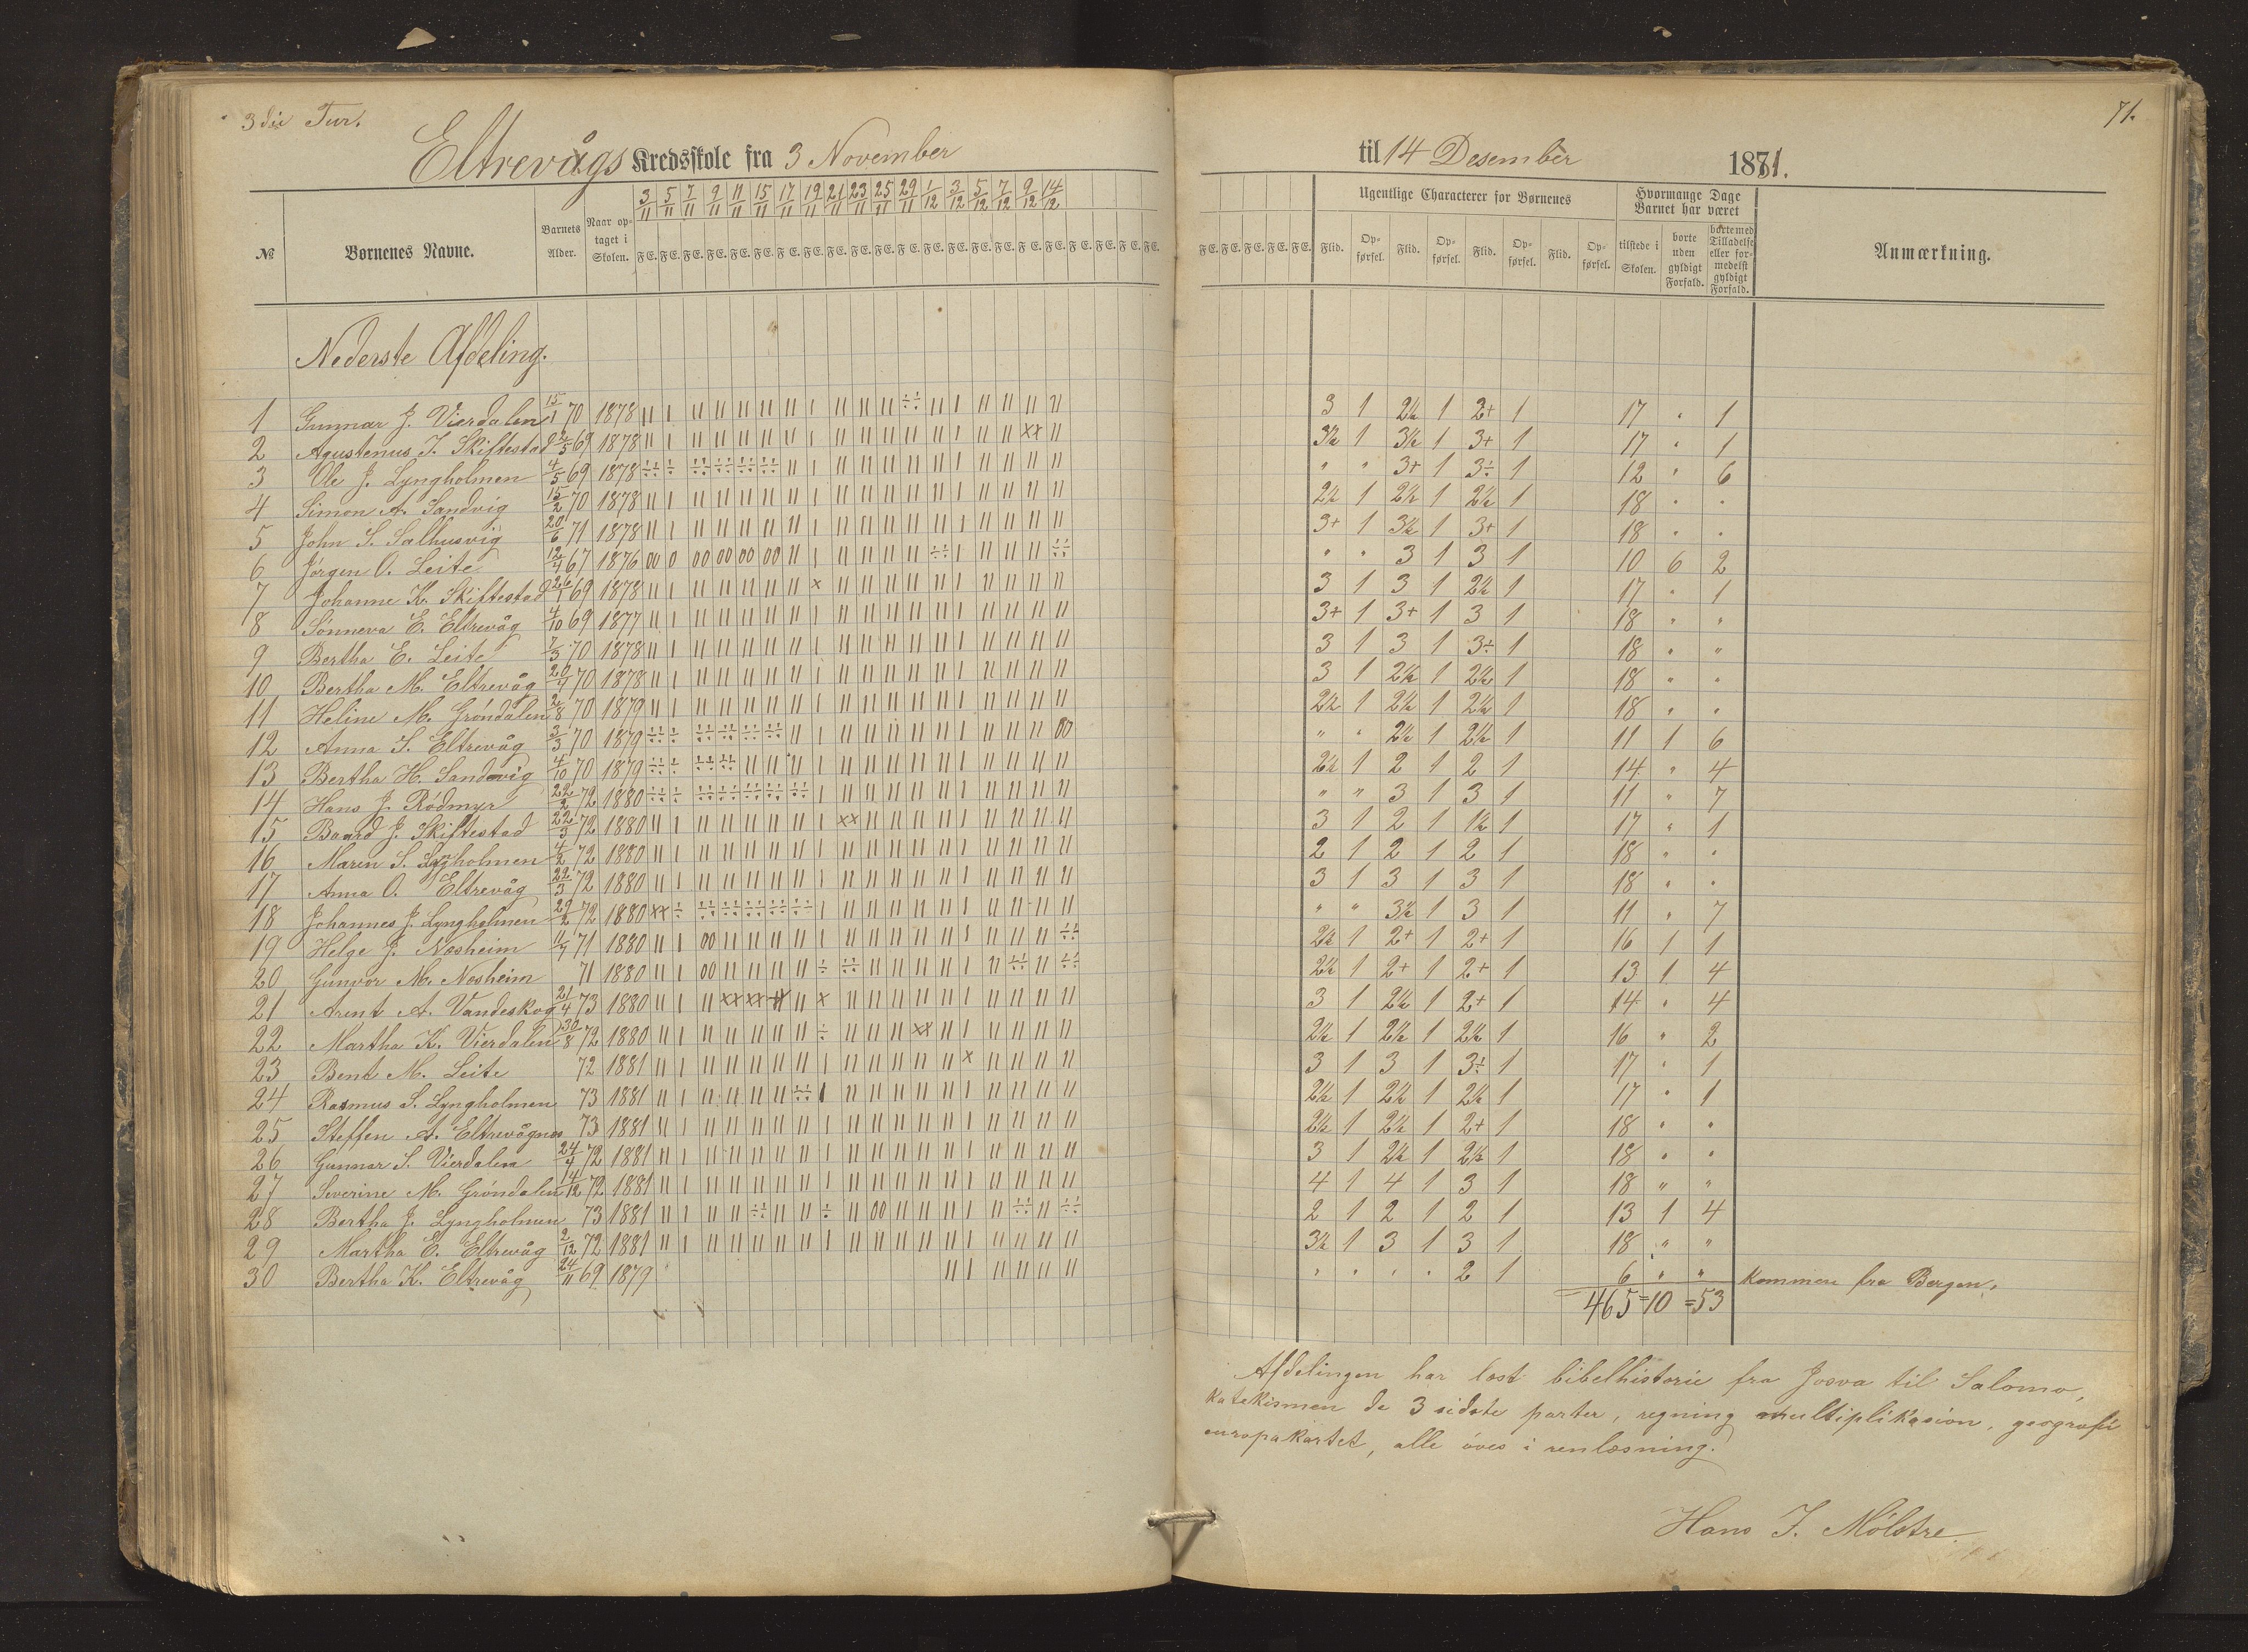 3die Tur.
71.
Eltrevågs Kredsskole fra 3 November til 14 Desember 1881.
№ Børnenes Navne. Barnets Alder. Naar optaget i Skolen. 3/11 5/11 7/11 9/11 11/11 15/11 17/11 19/11 21/11 23/11 25/11 29/11 1/12 3/12 5/12 7/12 9/12 14/12
F E. F E. F E. F E. F E. F E. F E. F E. F E. F E. F E. F E. F E. F E. F E. F E. F E. F E. F E. F E. F E. F E.
F E. F E. F E. F E. F E. Ugentlige Characterer for Børnenes Flid. Opførsel. Flid. Opførsel. Flid. Opførsel. Flid. Opførsel.
Hvormange Dage Barnet har været tilstede i Skolen. borte uden gyldigt Forfald. borte med Tilladelse eller formedelst gyldigt Forfald. Anmærkning.
Nederste Afdeling.
1 Gunnar J. Vierdalen 15/1 70 1878 3 1 2½ 1 2+ 1 17 " 1
2 Agustenus J. Skiftestad 2/5 69 1878 3½ 1 3½ 1 3+ 1 17 " 1
3 Ole J. Lyngholmen 4/5 69 1878 " " 3+ 1 3÷ 1 12 " 6
4 Simon A. Sandvig 15/2 70 1878 2½ 1 2½ 1 2½ 1 18 " "
5 John S. Salhusvig 20/6 71 1878 3+ 1 3½ 1 3+ 1 18 " "
6 Jørgen O. Leite 12/4 67 1876 " " 3 1 3 1 10 6 2
7 Johanne K. Skiftestad 26/1 69 1878 3 1 3 1 2½ 1 17 " 1
8 Sønneva E. Eltrevåg 4/10 69 1877 3+ 1 3+ 1 3 1 18 " "
9 Bertha E. Leite 7/3 70 1878 3 1 3 1 3÷ 1 18 " "
10 Bertha M. Eltrevåg 20/4 70 1878 3 1 2½ 1 2½ 1 18 " "
11 Heline M. Gröndalen 2/8 70 1879 2½ 1 2½ 1 2½ 1 18 " "
12 Anna S. Eltrevåg 3/3 70 1879 " " 2½ 1 2½ 1 11 1 6
13 Bertha H. Sandvig 4/10 70 1879 2½ 1 2 1 2 1 14 " 4
14 Hans J. Rödmyr 22/2 72 1880 " " 3 1 3 1 11 " 7
15 Baard J. Skiftestad 22/3 72 1880 3 1 2 1 1½ 1 17 " 1
16 Maren S. Lyngholmen 4/2 72 1880 2 1 2 1 2 1 18 " "
17 Anna O. Eltrevåg 22/3 72 1880 3 1 3 1 3 1 18 " "
18 Johannes J. Lyngholmen 29/2 72 1880 " " 3½ 1 3 1 11 " 7
19 Helge J. Nosheim 11/7 71 1880 2½ 1 2+ 1 2+ 1 16 1 1
20 Gunvor M. Nosheim 71 1880 2½ 1 2+ 1 2+ 1 13 1 4
21 Arent A. Vandeskog 21/4 73 1880 3 1 2½ 1 2+ 1 14 " 4
22 Martha K. Vierdalen 30/8 72 1880 2½ 1 2½ 1 2½ 1 16 " 2
23 Bent M. Leite 72 1881 3 1 3 1 3÷ 1 17 " 1
24 Rasmus S. Lyngholmen 73 1881 2½ 1 2½ 1 2½ 1 17 " 1
25 Steffen A. Eltrevågnes 73 1881 2½ 1 2½ 1 2+ 1 18 " "
26 Gunnar S. Vierdalen 24/4 72 1881 3 1 2½ 1 2½ 1 18 " "
27 Severine M. Gröndalen 14/12 72 1881 4 1 4 1 3 1 18 " "
28 Bertha J. Lyngholmen 73 1881 2 1 2 1 2 1 13 1 4
29 Martha E. Eltrevåg 2/12 72 1881 3½ 1 3 1 3 1 18 " "
30 Bertha K. Eltrevåg 24/11 69 1879 " " " " 2 1 6 " " kommen fra Bergen.
465 = 10 = 53
Afdelingen har læst bibelhistorie fra Josva til Salomo,
katekismen de 3 sidste parter, regning multiplikasion, geografi
europakartet, alle öves i renlæsning.
Hans J. Mölstre